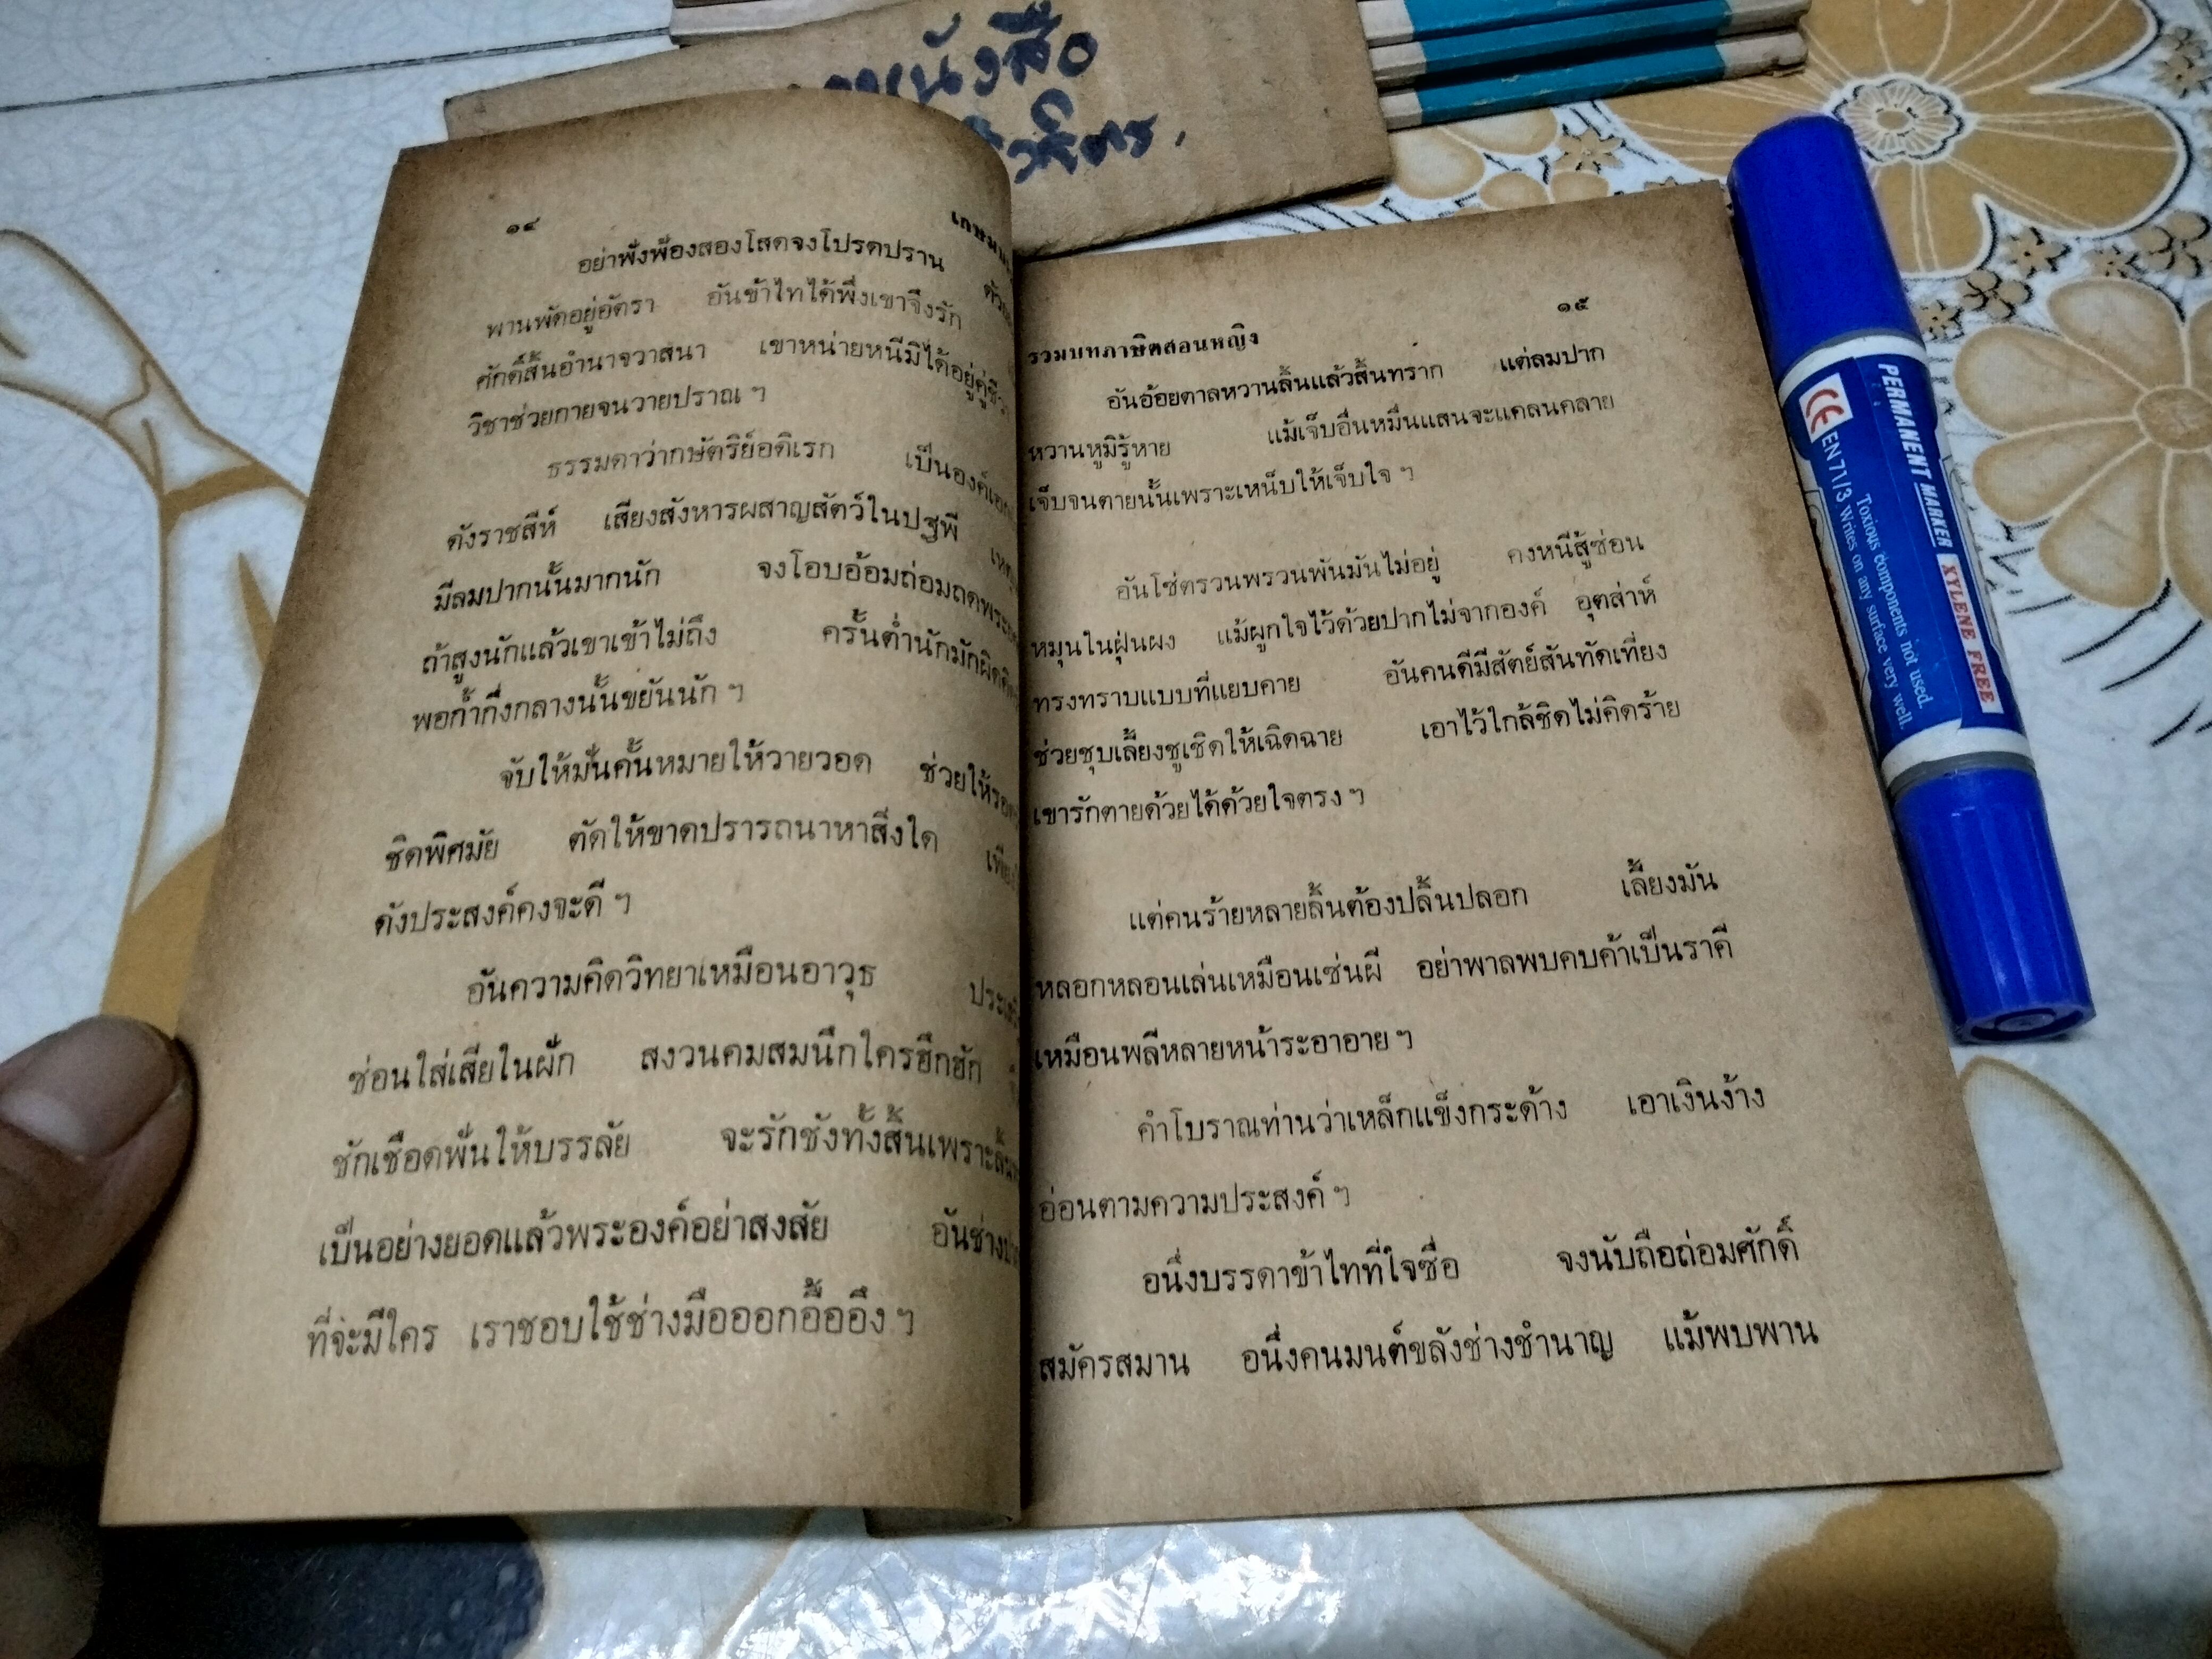 หนังสือ
๑๔
อย่าพั่งพ้องสองโสดจงโปรดปราน
พานพัดอยู่อัตรา อันข้าไทได้พึ่งเขาจึงรัก
ศักดิ์สิ้นอำนาจวาสนา เขาหน่ายหนีมิได้อยู่คู่ชีวา
วิชาช่วยกายจนวายปราณ ฯ
ธรรมดาว่ากษัตริย์อดิเรก เป็นองค์เอก
ดังราชสีห์ เสียงสังหารผสาญสัตว์ในปฐพี
มีลมปากนั้นมากนัก จงโอบอ้อมถ่อมถด
ถ้าสูงนักแล้วเขาเข้าไม่ถึง ครั้นต่ำนักมักผิด
พอก้ำกึ่งกลางนั้นขยันนัก ฯ
จับให้มั่นคั้นหมายให้วายวอด ช่วยให้รอด
ชิดพิศมัย ตัดให้ขาดปรารถนาหาสิ่งใด
ดังประสงค์คงจะดี ฯ
อันความคิดวิทยาเหมือนอาวุธ
ซ่อนใส่เสียในผัก สงวนคมสมนึกใครฮึกฮัก
ชักเชือดพันให้บรรลัย จะรักชังทั้งสิ้นเพราะลิ้น
เป็นอย่างยอดแล้วพระองค์อย่าสงสัย อันช่าง
ที่จะมีใคร เราชอบใช้ช่างมือออกอื้ออึง ฯ
๑๕
รวมบทภาษิตสอนหญิง
อันอ้อยตาลหวานลิ้นแล้วสิ้นทราก แต่ลมปาก
หวานหูมิรู้หาย แม้เจ็บอื่นหมื่นแสนจะแคลนคลาย
เจ็บจนตายนั้นเพราะเหน็บให้เจ็บใจ ฯ
อันโซ่ตรวนพรวนพันมันไม่อยู่ คงหนีสู้ซ่อน
หมุนในฝุ่นผง แม้ผูกใจไว้ด้วยปากไม่จากองค์ อุตส่าห์
ทรงทราบแบบที่แยบคาย อันคนดีมีสัตย์สันทัดเที่ยง
ช่วยชุบเลี้ยงชูเชิดให้เฉิดฉาย เอาไว้ใกล้ชิดไม่คิดร้าย
เขารักตายด้วยได้ด้วยใจตรง ฯ
แต่คนร้ายหลายลิ้นต้องปลิ้นปลอก เลี้ยงมัน
หลอกหลอนเล่นเหมือนเช่นผี อย่าพาลพบคบค้าเป็นราคี
เหมือนพลีหลายหน้าระอาอาย ฯ
คำโบราณท่านว่าเหล็กแข็งกระด้าง เอาเงินง้าง
อ่อนตามความประสงค์ ฯ
อนึ่งบรรดาข้าไทที่ใจซื่อ จงนับถือถ่อมศักดิ์
สมัครสมาน อนึ่งคนมนต์ขลังช่างชำนาญ แม้พบพาน
PERMANENT MARKER XYLENE FREE
Toxious components not used.
CE EN71/3 Writes on any surface very well.